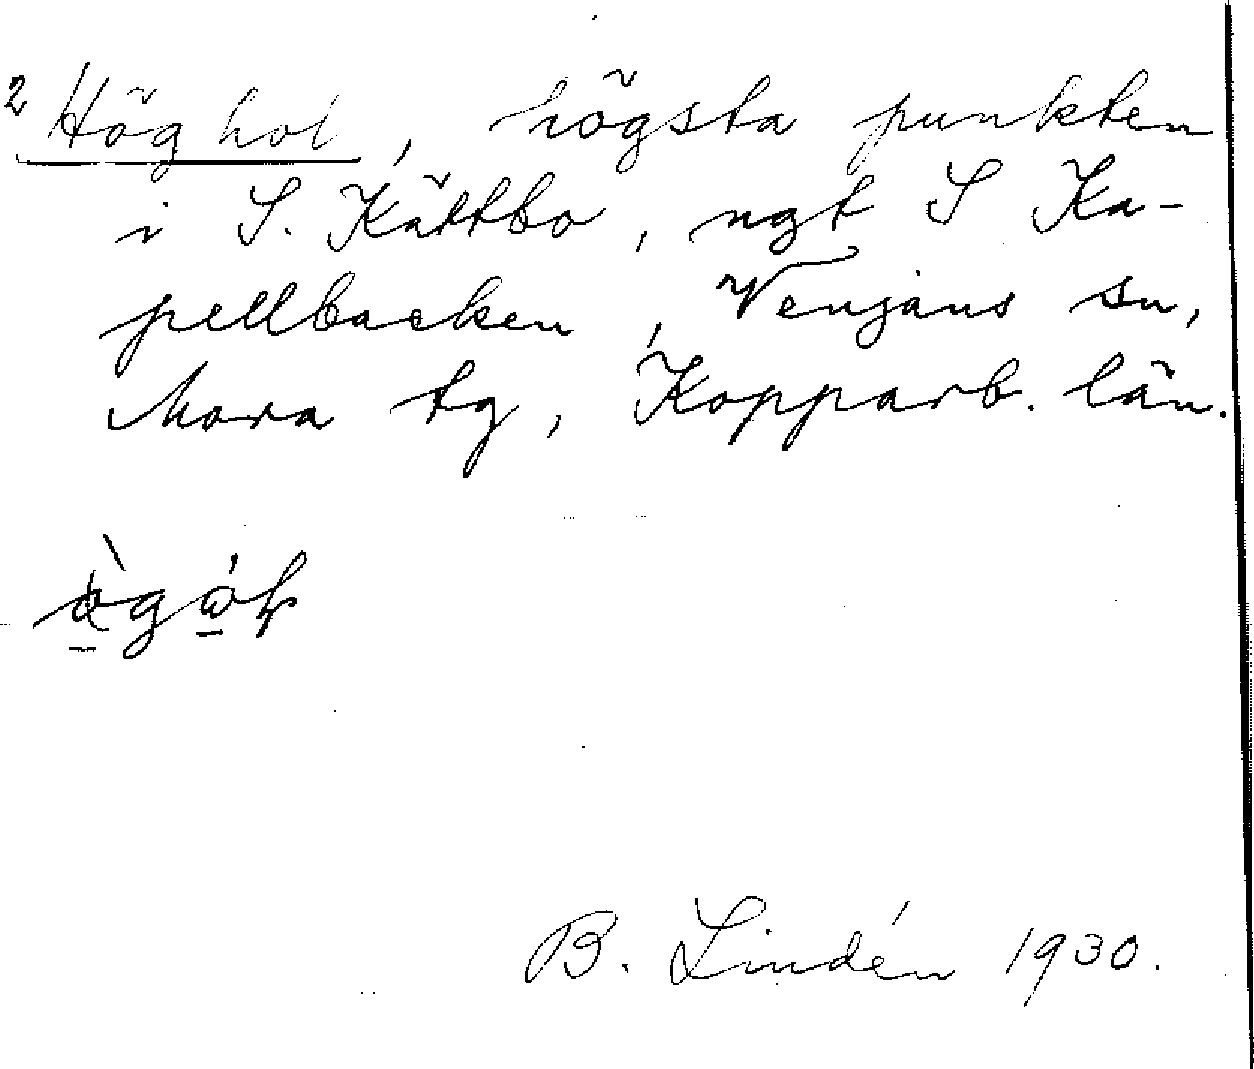 2 Höghol, högsta punkten
i S. Kättbo, ngt S Ka-
pellbacken, Venjans sn,
Mora tg, Kopparb. län.
B. Lindén 1930.